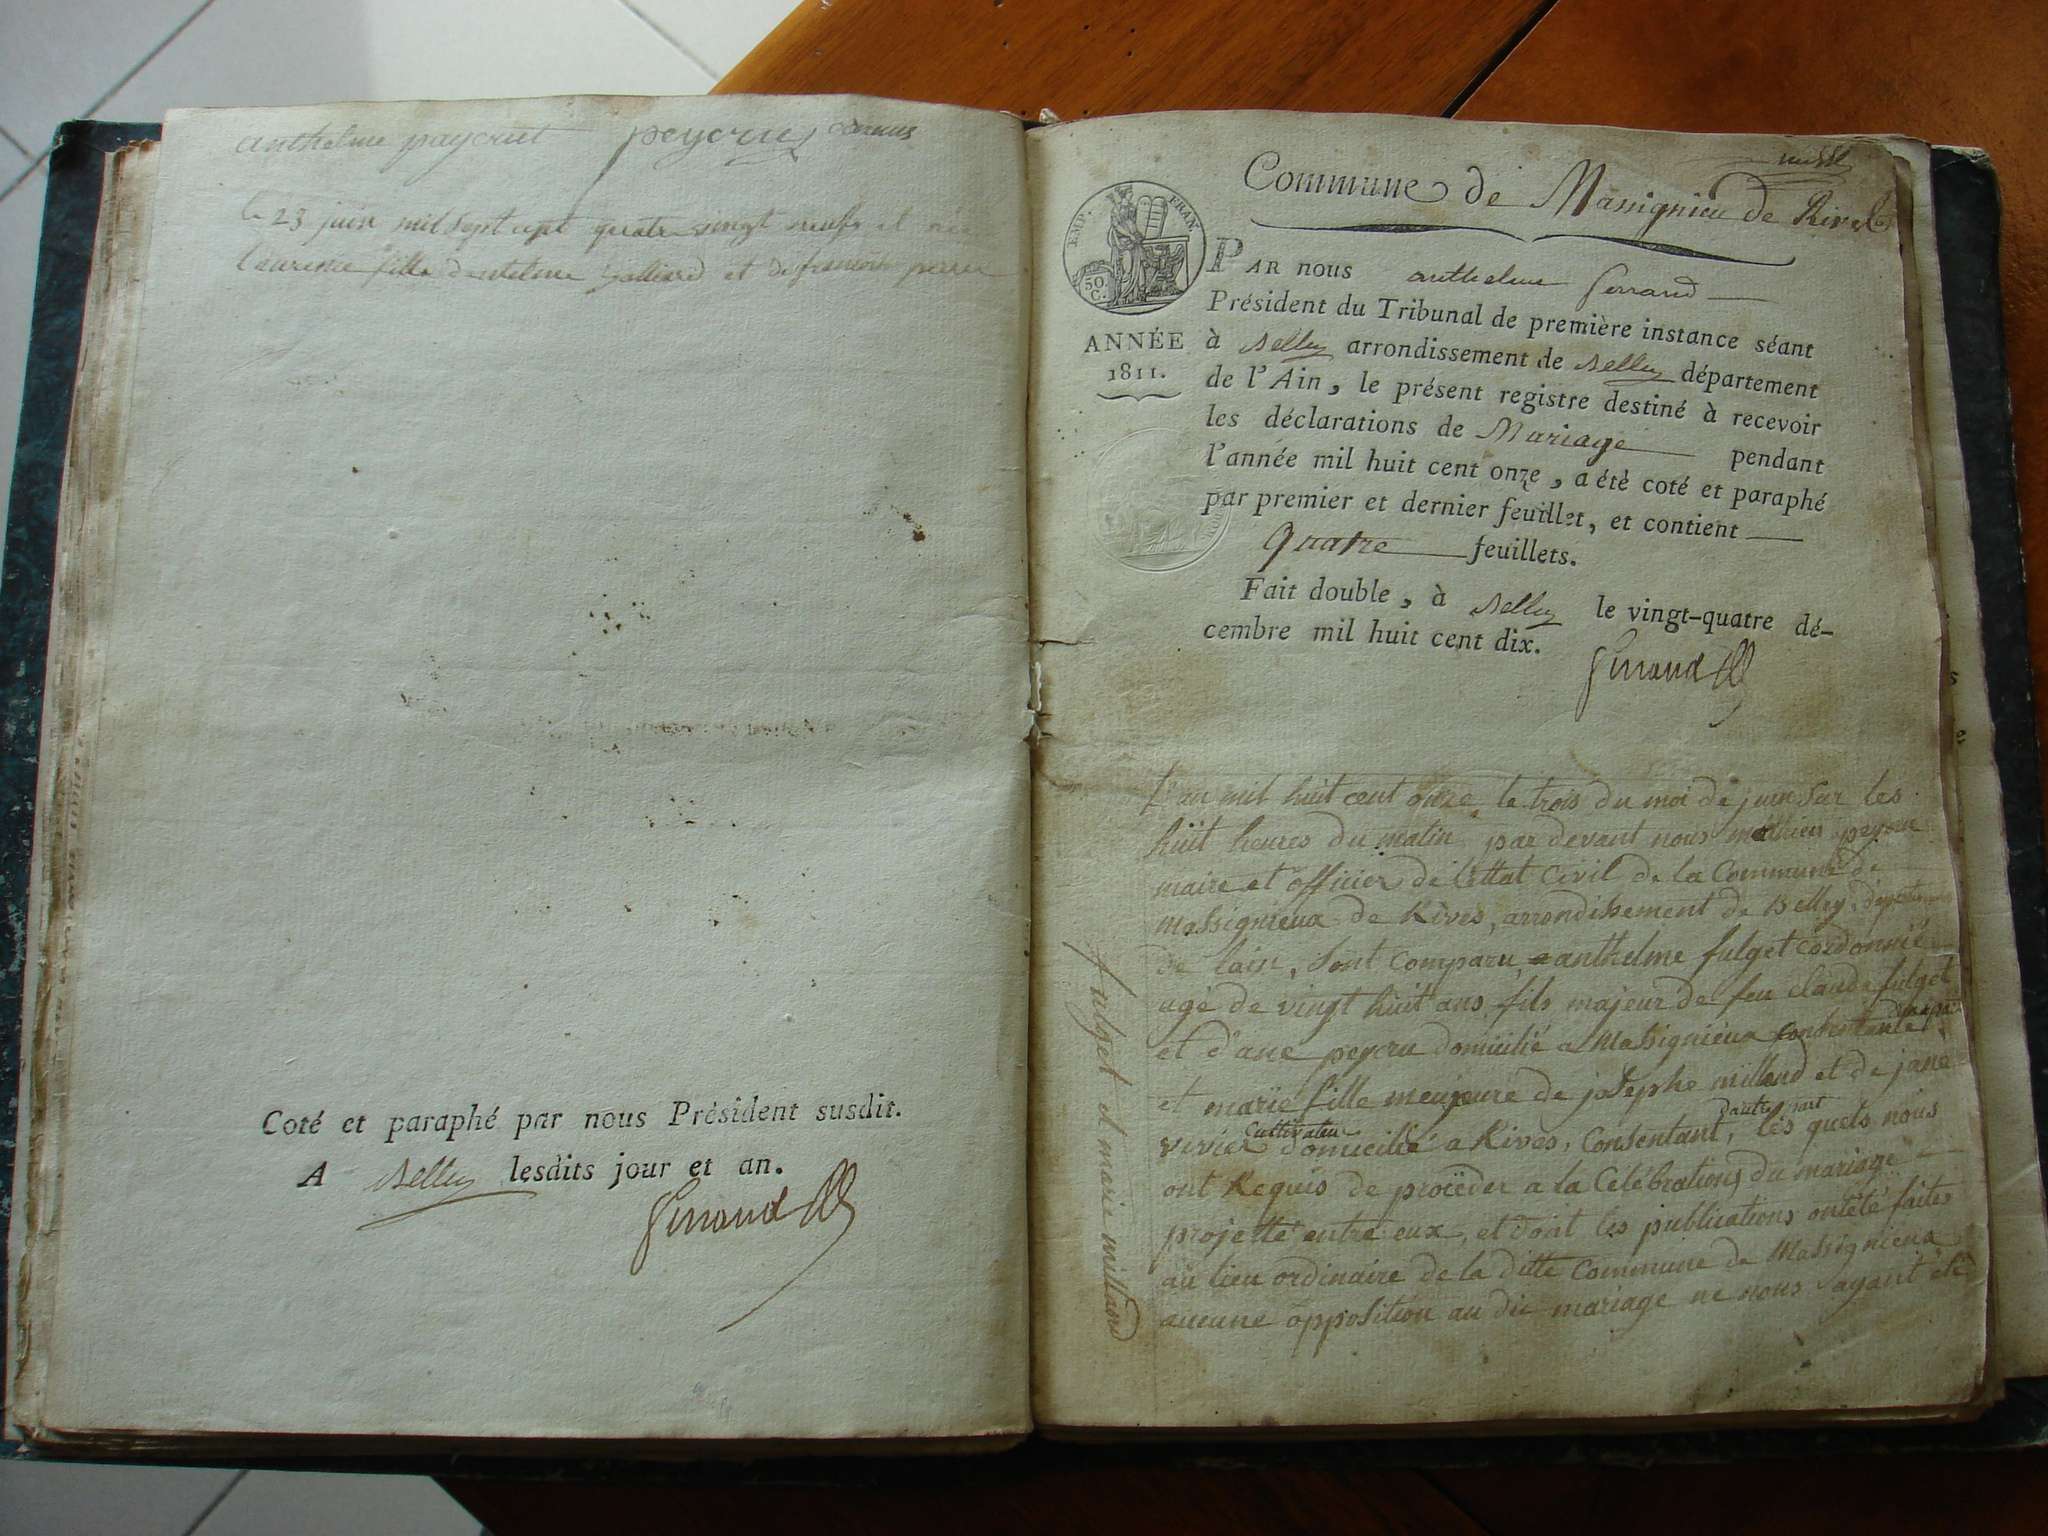 anthelme paycrut peycru
le 23 juin mil sept cent quatre vingt neufs et née
laurence fille dantelme galliard et de
Coté et paraphé par nous Président susdit.
A Belley lesdits jour et an.
Commune de Massignieu de Rives
EMP. FRAN.
50. C.
ANNÉE
1811.
PAR nous anthelme
Président du Tribunal de première instance séant
à Belley arrondissement de Belley département
de l'Ain, le présent registre destiné à recevoir
les déclarations de Mariage pendant
l'année mil huit cent onze, a été coté et paraphé
par premier et dernier feuillet, et contient
quatre feuillets.
Fait double, à Belley le vingt-quatre dé-
cembre mil huit cent dix.
L'an mil huit cent onze, le trois du moi de juin sur les
huit heures du matin, par devant nous mathieu
maire et officier de l'ettat Civil de la Commune de
Massignieux de Rives, arrondissement de Belley, département
de lain, sont comparu anthelme fulget cordonnié
agé de vingt huit ans fils majeur de feu claude fulget
et d'ane peycru domicilié a Massignieux consentante
et marie fille meujeure de josephe milland et de jane
vivier cultivateur domicilié a Rives, Consentant, d'autre part les quels nous
ont Requis de procéder a la Célébrations du mariage
projetté entre eux, et dont les publications ont été faites
au lieu ordinaire de la ditte Commune de Massignieux
aucune opposition au dit mariage ne nous ayant été
fulget et marie milland